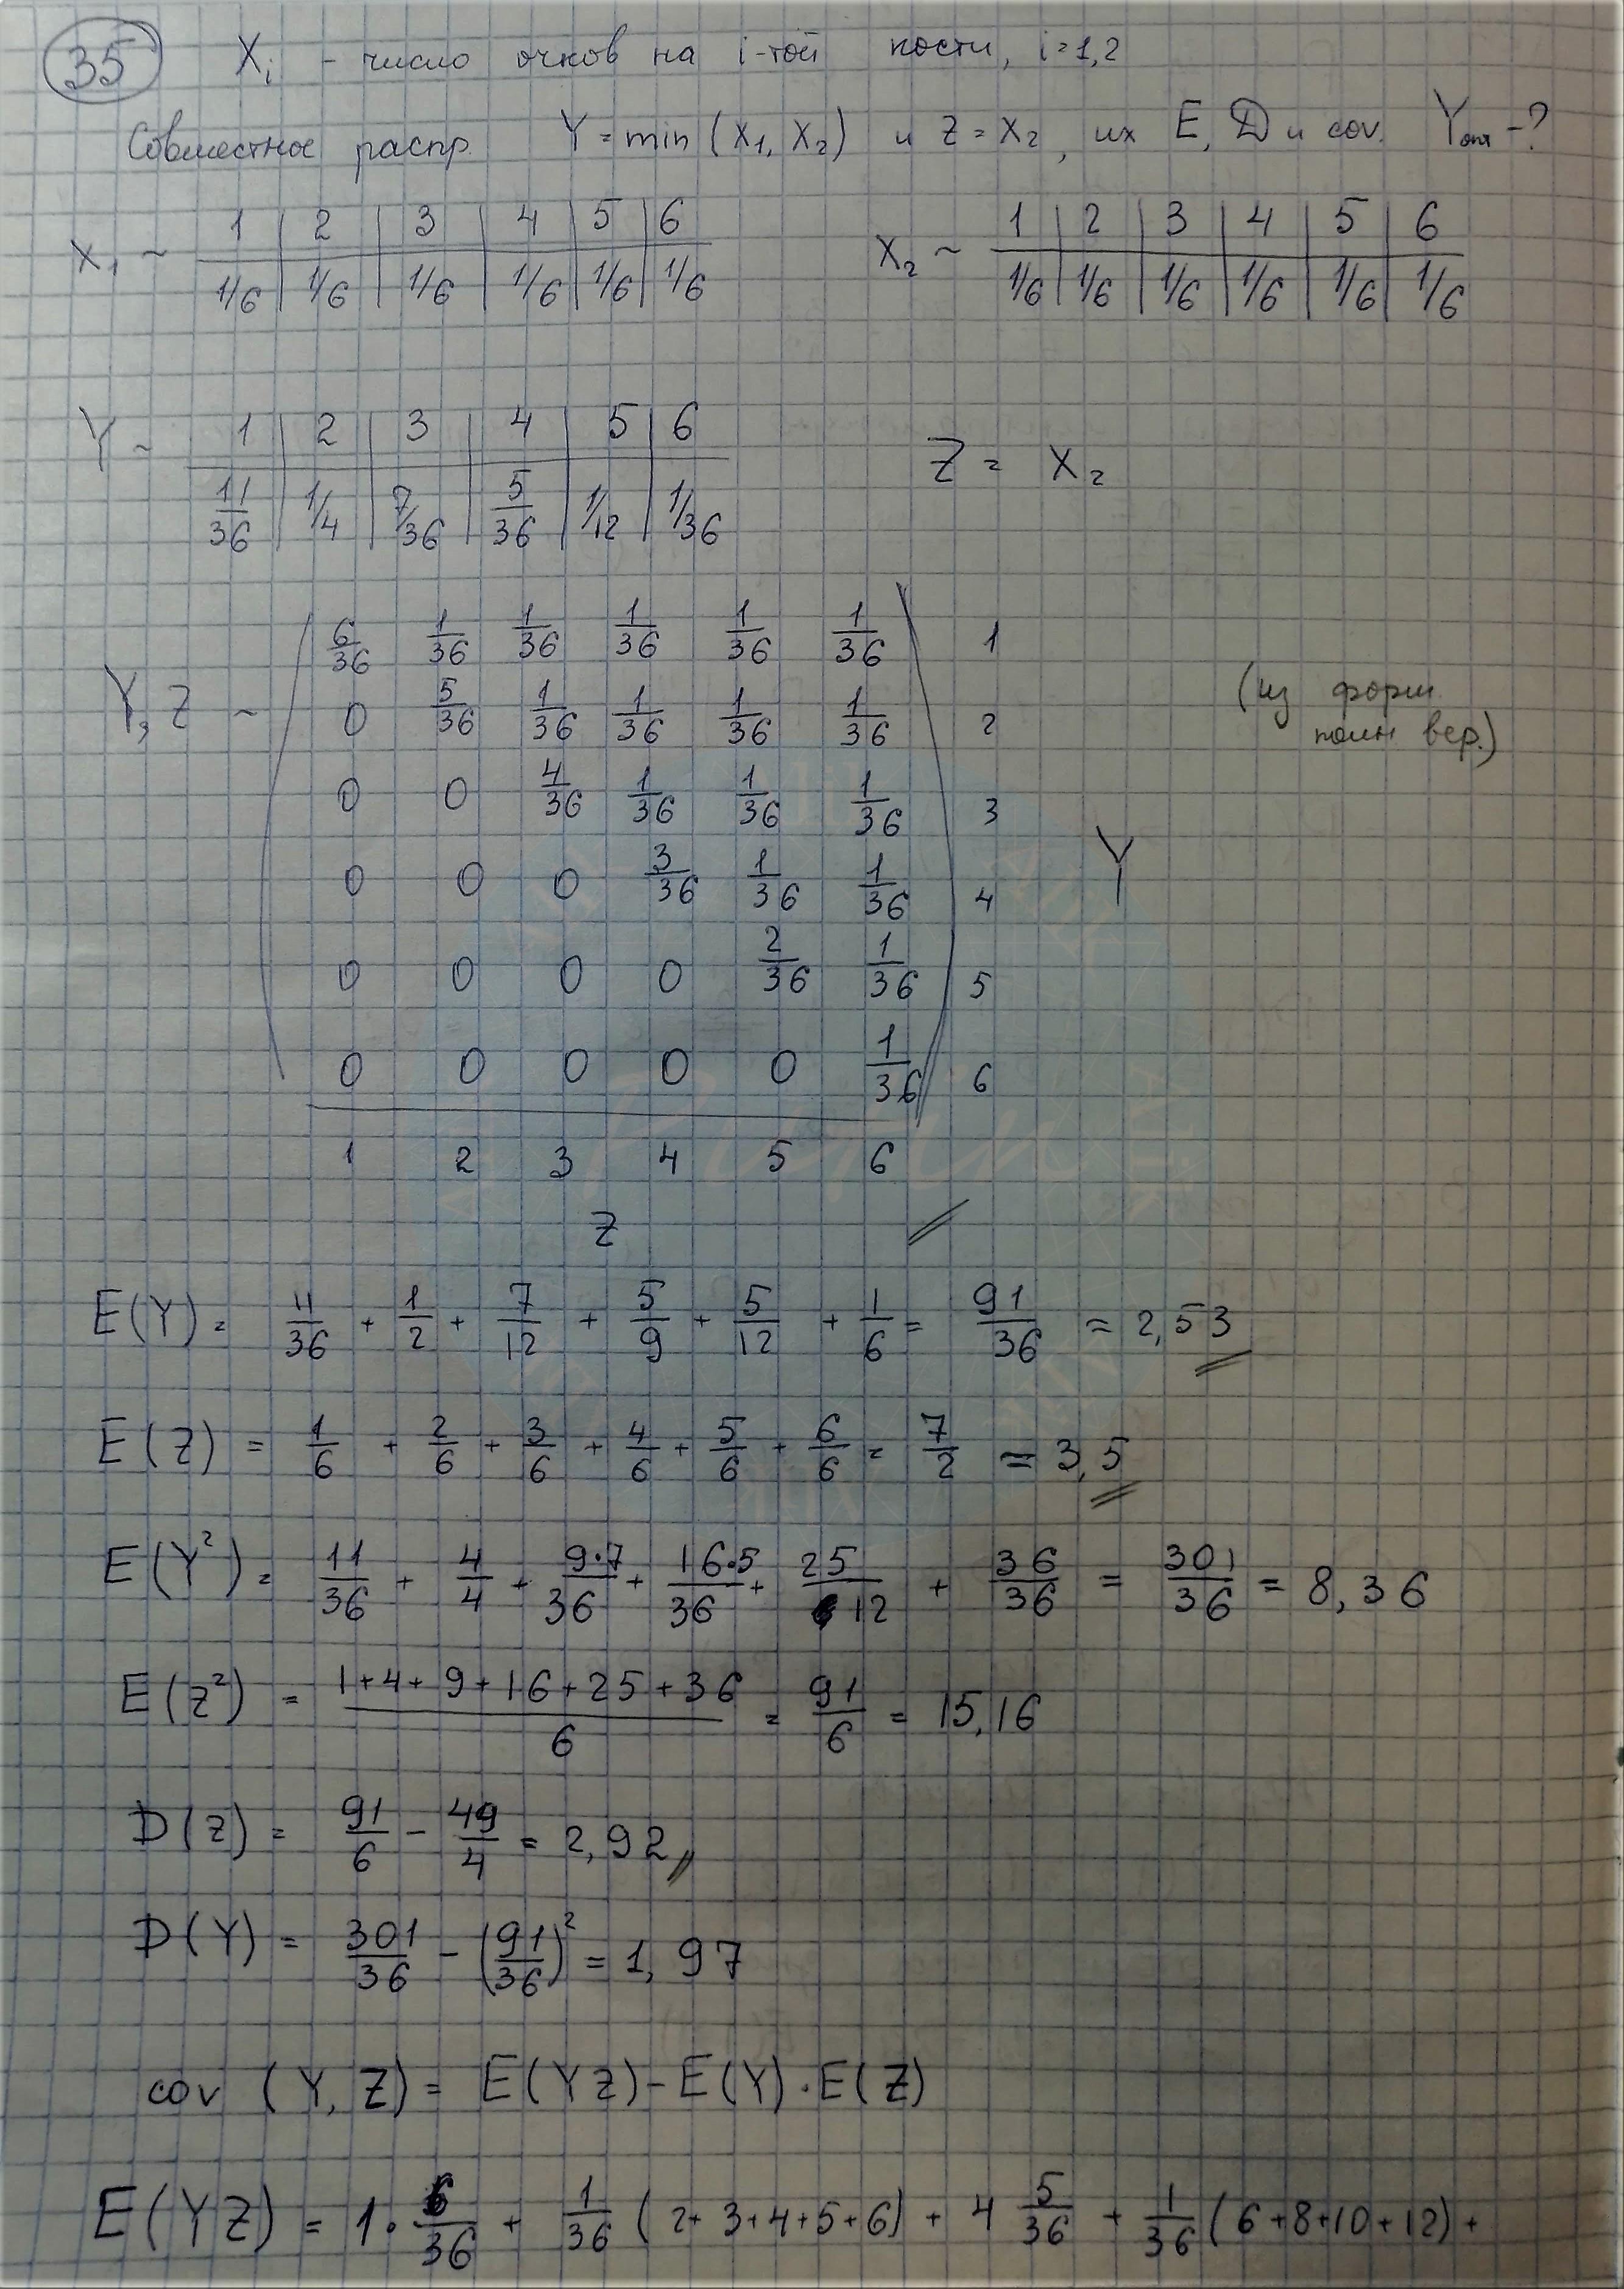 35 Xi - число очков на i-той кости, i=1,2
Совместное распр. Y = min (X1, X2) и Z = X2, их E, D и cov. Yопт -?
X1 ~ 1 2 3 4 5 6
1/6 1/6 1/6 1/6 1/6 1/6
X2 ~ 1 2 3 4 5 6
1/6 1/6 1/6 1/6 1/6 1/6
Y ~ 1 2 3 4 5 6
11/36 1/4 7/36 5/36 1/12 1/36
Z = X2
Y, Z ~
6/36 1/36 1/36 1/36 1/36 1/36 1
0 5/36 1/36 1/36 1/36 1/36 2
0 0 4/36 1/36 1/36 1/36 3
0 0 0 3/36 1/36 1/36 4
0 0 0 0 2/36 1/36 5
0 0 0 0 0 1/36 6
Y
(из форм
полн вер.)
1 2 3 4 5 6
Z
E(Y) = 11/36 + 1/2 + 7/12 + 5/9 + 5/12 + 1/6 = 91/36 = 2,53
E(Z) = 1/6 + 2/6 + 3/6 + 4/6 + 5/6 + 6/6 = 7/2 = 3,5
E(Y²) = 11/36 + 4/4 + 9·7/36 + 16·5/36 + 25/12 + 36/36 = 301/36 = 8,36
E(Z²) = (1+4+9+16+25+36)/6 = 91/6 = 15,16
D(Z) = 91/6 - 49/4 = 2,92
D(Y) = 301/36 - (91/36)² = 1,97
cov (Y, Z) = E(YZ) - E(Y)·E(Z)
E(YZ) = 1·6/36 + 1/36 (2+3+4+5+6) + 4 5/36 + 1/36 (6+8+10+12) +